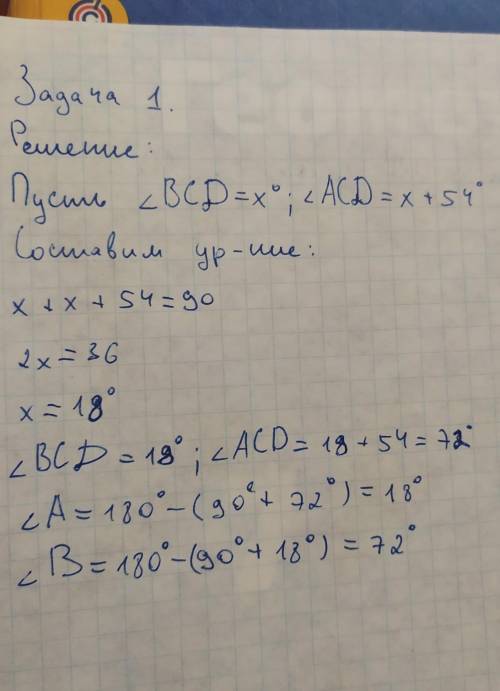 Задача 1.
Решение:
Пусть ∠BCD = x°; ∠ACD = x + 54°
Составим ур-ние:
x + x + 54 = 90
2x = 36
x = 18°
∠BCD = 18°; ∠ACD = 18 + 54 = 72°
∠A = 180° - (90° + 72°) = 18°
∠B = 180° - (90° + 18°) = 72°